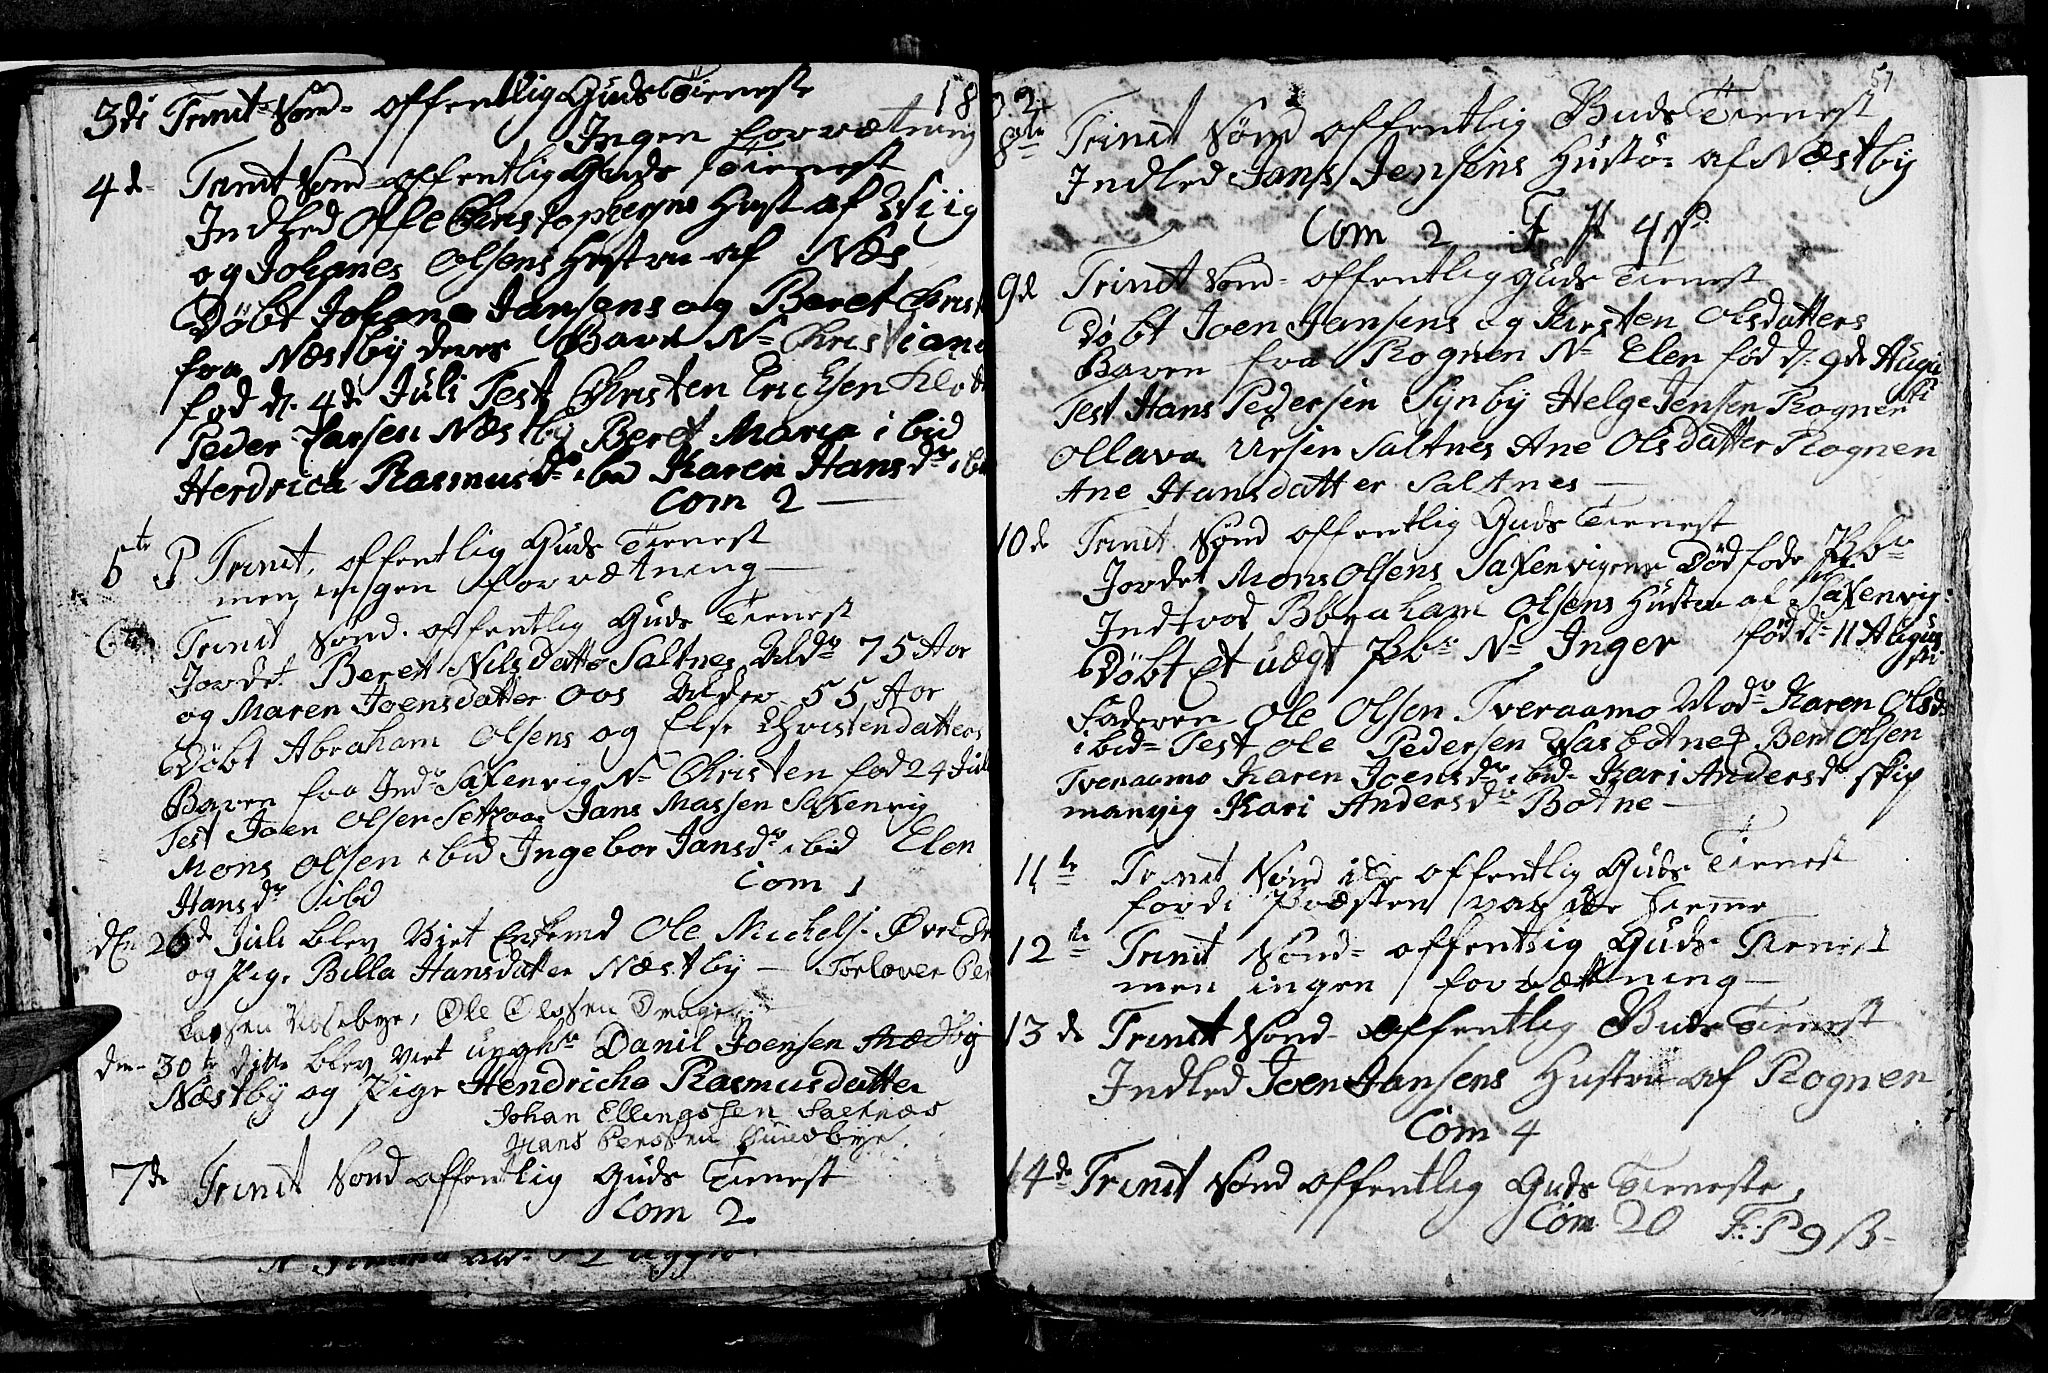 18
3di Trinit Sønd- offentlig Guds Tieneste
Ingen forrætning
4de Trinit Sønd- offentlig Guds Tienest
Indled Offle Christophersens Hust af Wiig
og Johanes Olsens Hustru af Næs
Døbt Johan Jansens og Beret Christ
fra Næstby deres Barn N= Christiana
fød d. 4de Juli Test Christen Erichsen
Peder Larsen Næstby Beret Maria ibid
Herdrica Rasmusdr ibd Karen Hansdr ib
Com 2
5te S Trinit, offentlig Guds Tienest
men ingen forrætning
6te Trinit Sønd. offentlig Guds Tienest
Jordet Beret Nilsdatter Saltnes Aldr 75 Aar
og Maren Joensdatter Oos Alder 55 Aar
Døbt Abraham Olsens og Else Christendatters
Baren fra Indr Saxenvig N= Christen fød 24 Juli
Test Joen Olsen Setsaae Jans Massen Saxenvig
Mons Olsen ibid Ingebor Jansdr ibid Elen
Hansdr ibd Com 1
den 26de Juli blev Viet Enkemd Ole Michels.
og Pige Billa Hansdatter Næstby - Forlover Per
Larsen Næstbye, Ole Olesen
den 30te ditto blev viet unghr Danil Joensen
Næstby og Pige Hendricha Rasmusdatter
Johan Ellingssen Saltnæs
Hans Perssen Sundbye.
7de Trinit Sønd offentlig Guds Tienest
Com 2.
51
8te Trinit Sønd offentlig Guds Tienest
Indled Jans Jensens Hustr af Næstby
Com 2 F. P 4 ß
9de Trinit Sønd- offentlig Guds Tienest
Døbt Joen Jansens og Kirsten Olsdatters
Baren fra Rognen N= Elen fød d. 9de Augu
sti
Test Hans Pedersen Synby Helge Jensen Rognen
Ollava Ursin Saltnes Ane Olsdatter Rognen
Ane Hansdatter Saltnes
10de Trinit Sønd offentlig Guds Tienest
Jordet Mons Olsens Saxenvigens Død føde Pbn
Indled Abraham Olsens Hustru af Saxenvig
Døbt Et uægt Pbn N= Inger fød d= 11 Augus
sti
Faderen Ole Olsen Tveraamo Modr Karen Olsd
ibid= Test Ole Pedersen Wasbotnes Bent Olsen
Tveraamo Karen Joensdr ibid Kari Andersdr Skip
manvig Kari Andersdr Botne
11te Trinit Sønd icke offentlig Guds Tienest
fordi Præsten var icke hieme
12te Trinit Sønd- offentlig Guds Tienest
men ingen forrættning
13de Trinit Sønd- offentlig Guds Tienest
Indled Joen Jansens Hustru af Rognen
Com 4
14de Trinit Sønd offentlig Guds Tieneste,
Com 20 F: P 9 ß